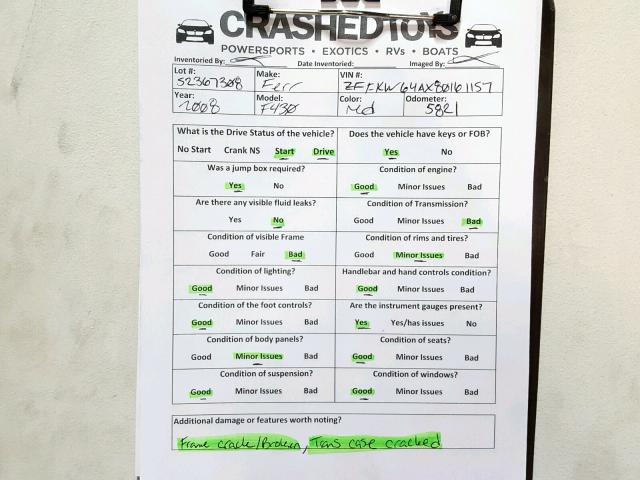 CRASHEDTOYS
POWERSPORTS • EXOTICS • RVs • BOATS
Inventoried By: Date Inventoried: Imaged By:
Lot #: 52367308 Make: Ferr VIN #: ZFFKW64AX80161157
Year: 2008 Model: F430 Color: Red Odometer: 5821
What is the Drive Status of the vehicle? Does the vehicle have keys or FOB?
No Start Crank NS Start Drive Yes No
Was a jump box required? Condition of engine?
Yes No Good Minor Issues Bad
Are there any visible fluid leaks? Condition of Transmission?
Yes No Good Minor Issues Bad
Condition of visible Frame Condition of rims and tires?
Good Fair Bad Good Minor Issues Bad
Condition of lighting? Handlebar and hand controls condition?
Good Minor Issues Bad Good Minor Issues Bad
Condition of the foot controls? Are the instrument gauges present?
Good Minor Issues Bad Yes Yes/has issues No
Condition of body panels? Condition of seats?
Good Minor Issues Bad Good Minor Issues Bad
Condition of suspension? Condition of windows?
Good Minor Issues Bad Good Minor Issues Bad
Additional damage or features worth noting?
Frame crack/Broken, Trans case cracked